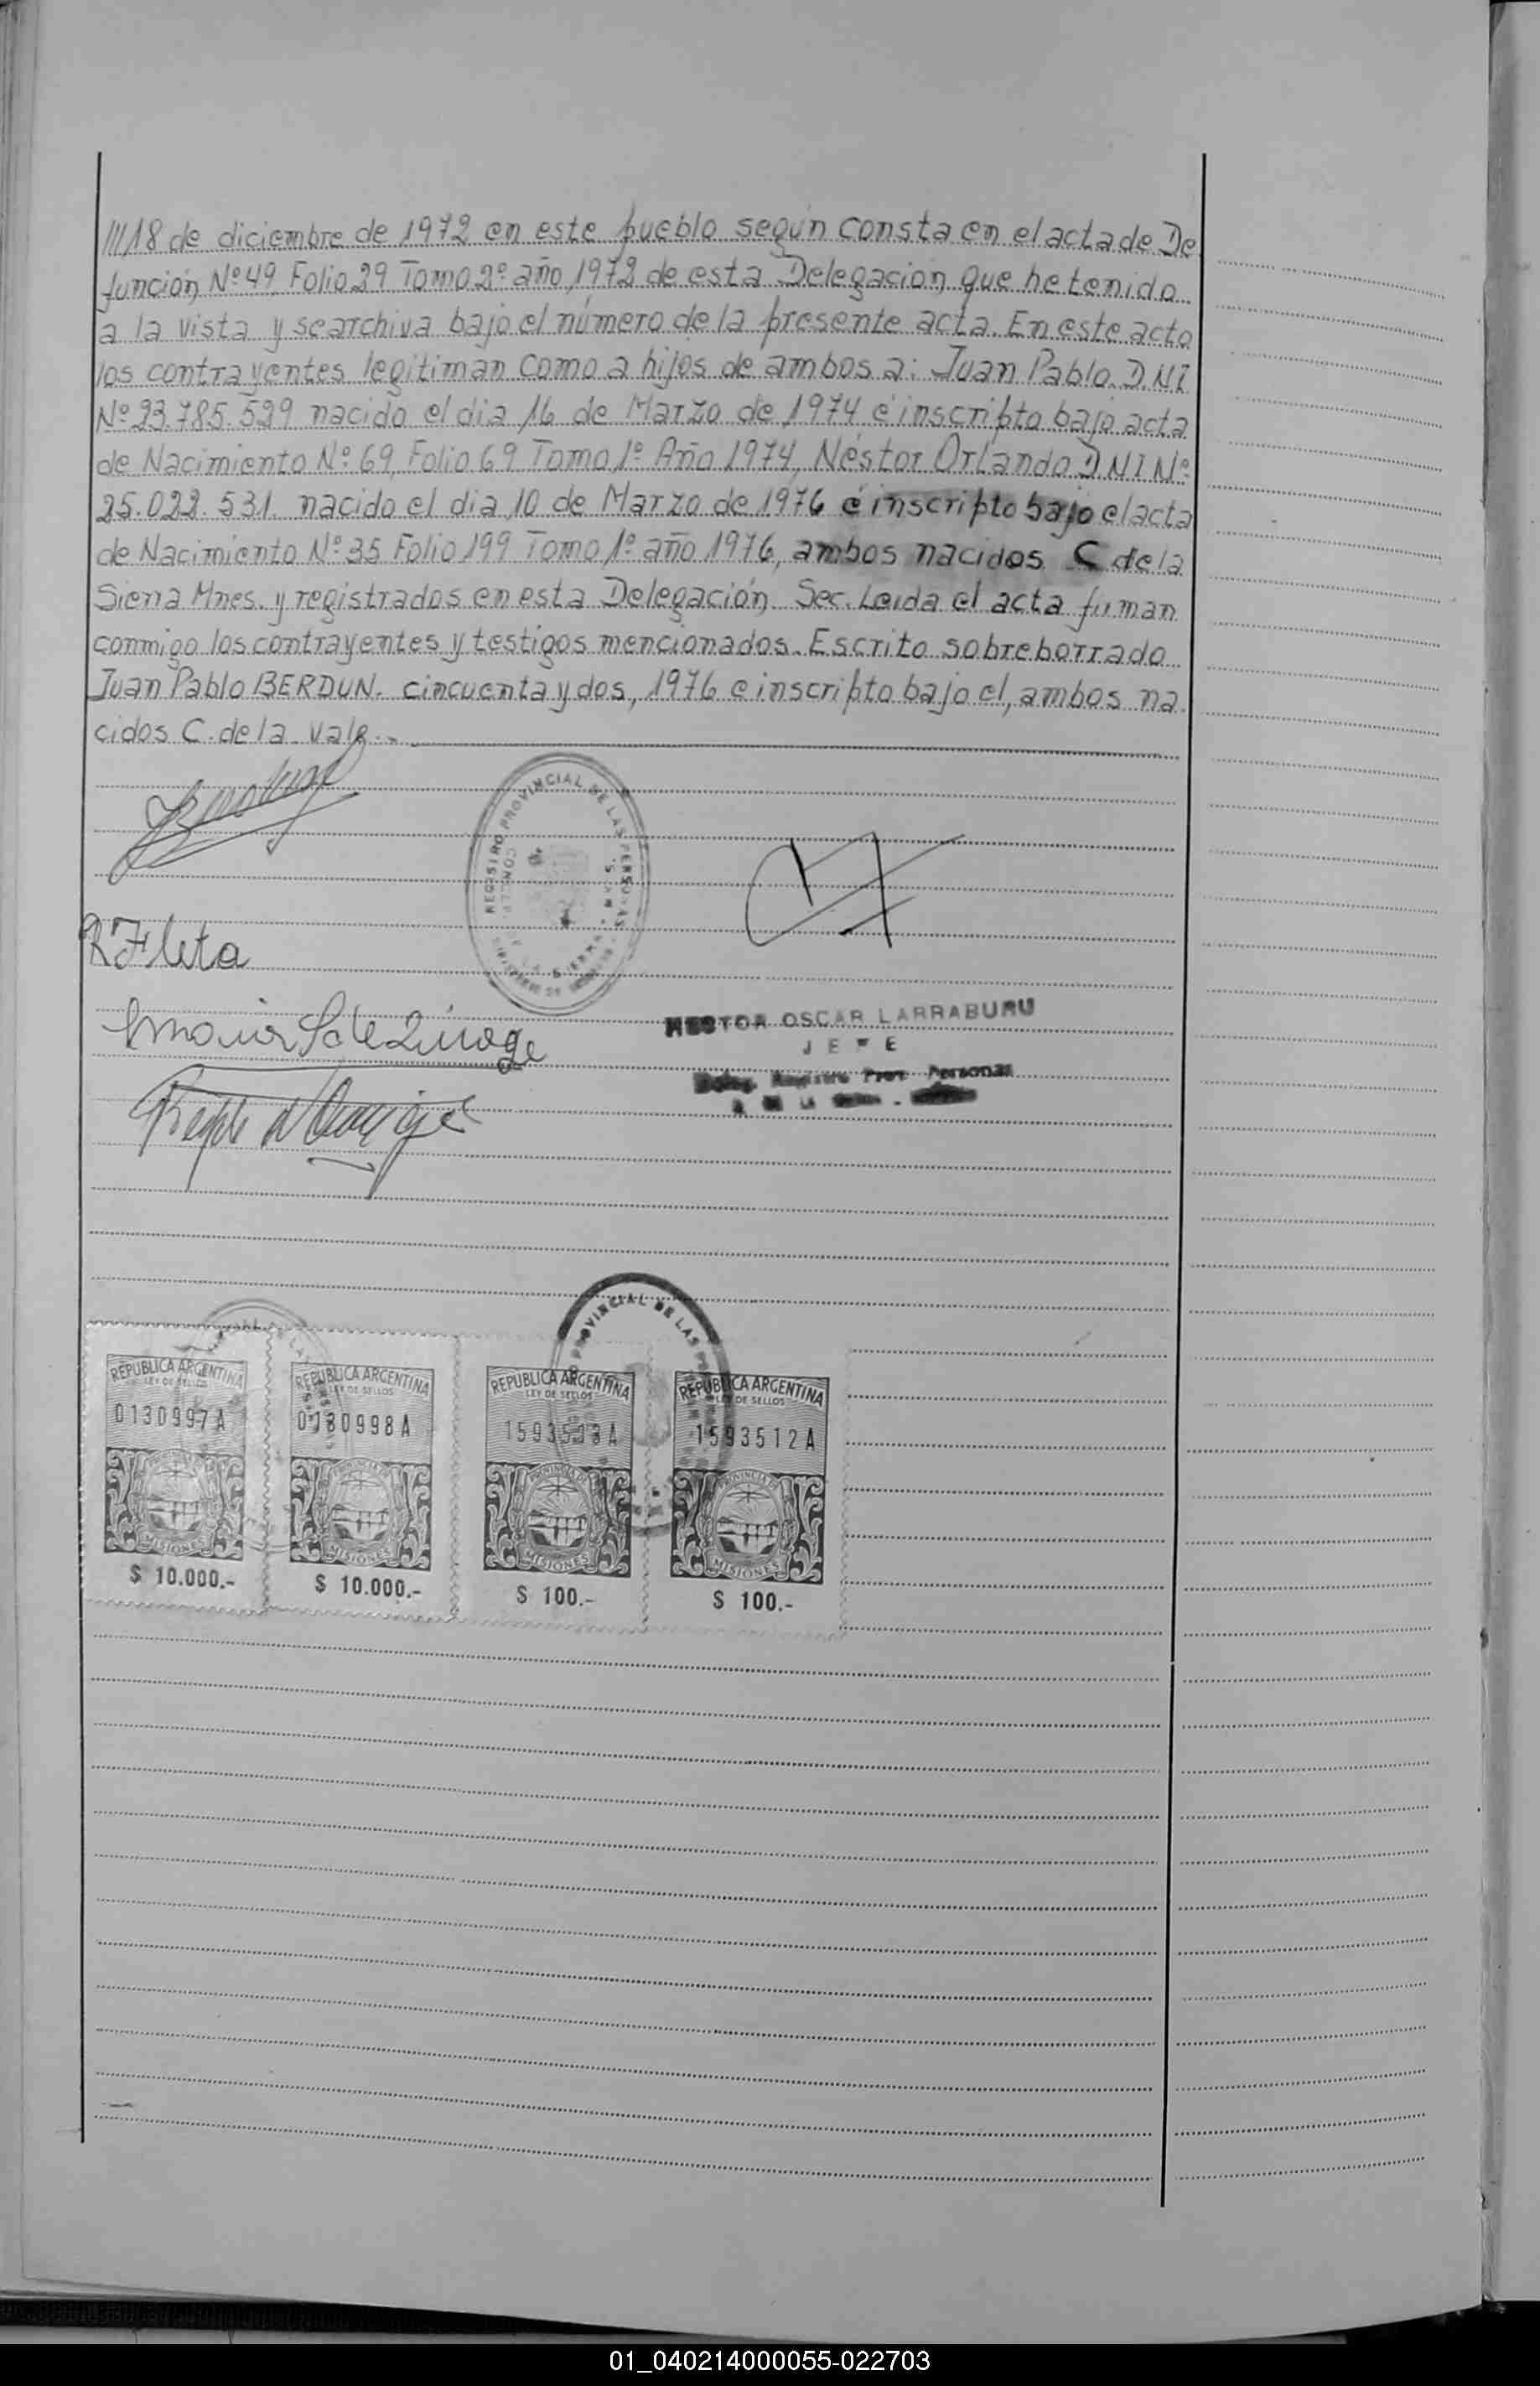 ///18 de diciembre de 1972 en este pueblo según consta en el acta de De
función Nº 49 Folio 29 Tomo 2º año 1972 de esta Delegación que he tenido
a la vista y se archiva bajo el número de la presente acta. En este acto
los contrayentes legitiman como a hijos de ambos a: Juan Pablo D.N.I
Nº 23.785.529 nacido el dia 16 de Marzo de 1974 é inscripto bajo acta
de Nacimiento Nº 69 Folio 69 Tomo 1º Año 1974, Néstor Orlando D.N.I Nº
25.022.531. nacido el dia 10 de Marzo de 1976 é inscripto bajo el acta
de Nacimiento Nº 35 Folio 199 Tomo 1º año 1976, ambos nacidos C de la
Sierra Mnes. y registrados en esta Delegación Sec. Leida el acta firman
conmigo los contrayentes y testigos mencionados. Escrito sobreborrado
Juan Pablo BERDUN. cincuenta y dos, 1976 e inscripto bajo el, ambos na
cidos C. de la Vale.-
REGISTRO PROVINCIAL DE LAS PERSONAS
R Fleta
NESTOR OSCAR LARRABURU
JEFE
Deleg. Registro Prov. Personas
PROVINCIAL DE LAS
REPUBLICA ARGENTINA
LEY DE SELLOS
0130997A
MISIONES
$ 10.000.-
REPUBLICA ARGENTINA
LEY DE SELLOS
0130998A
MISIONES
$ 10.000.-
REPUBLICA ARGENTINA
LEY DE SELLOS
1593513A
PROVINCIA DE
MISIONES
$ 100.-
REPUBLICA ARGENTINA
LEY DE SELLOS
1593512A
PROVINCIA DE
MISIONES
$ 100.-
01_040214000055-022703